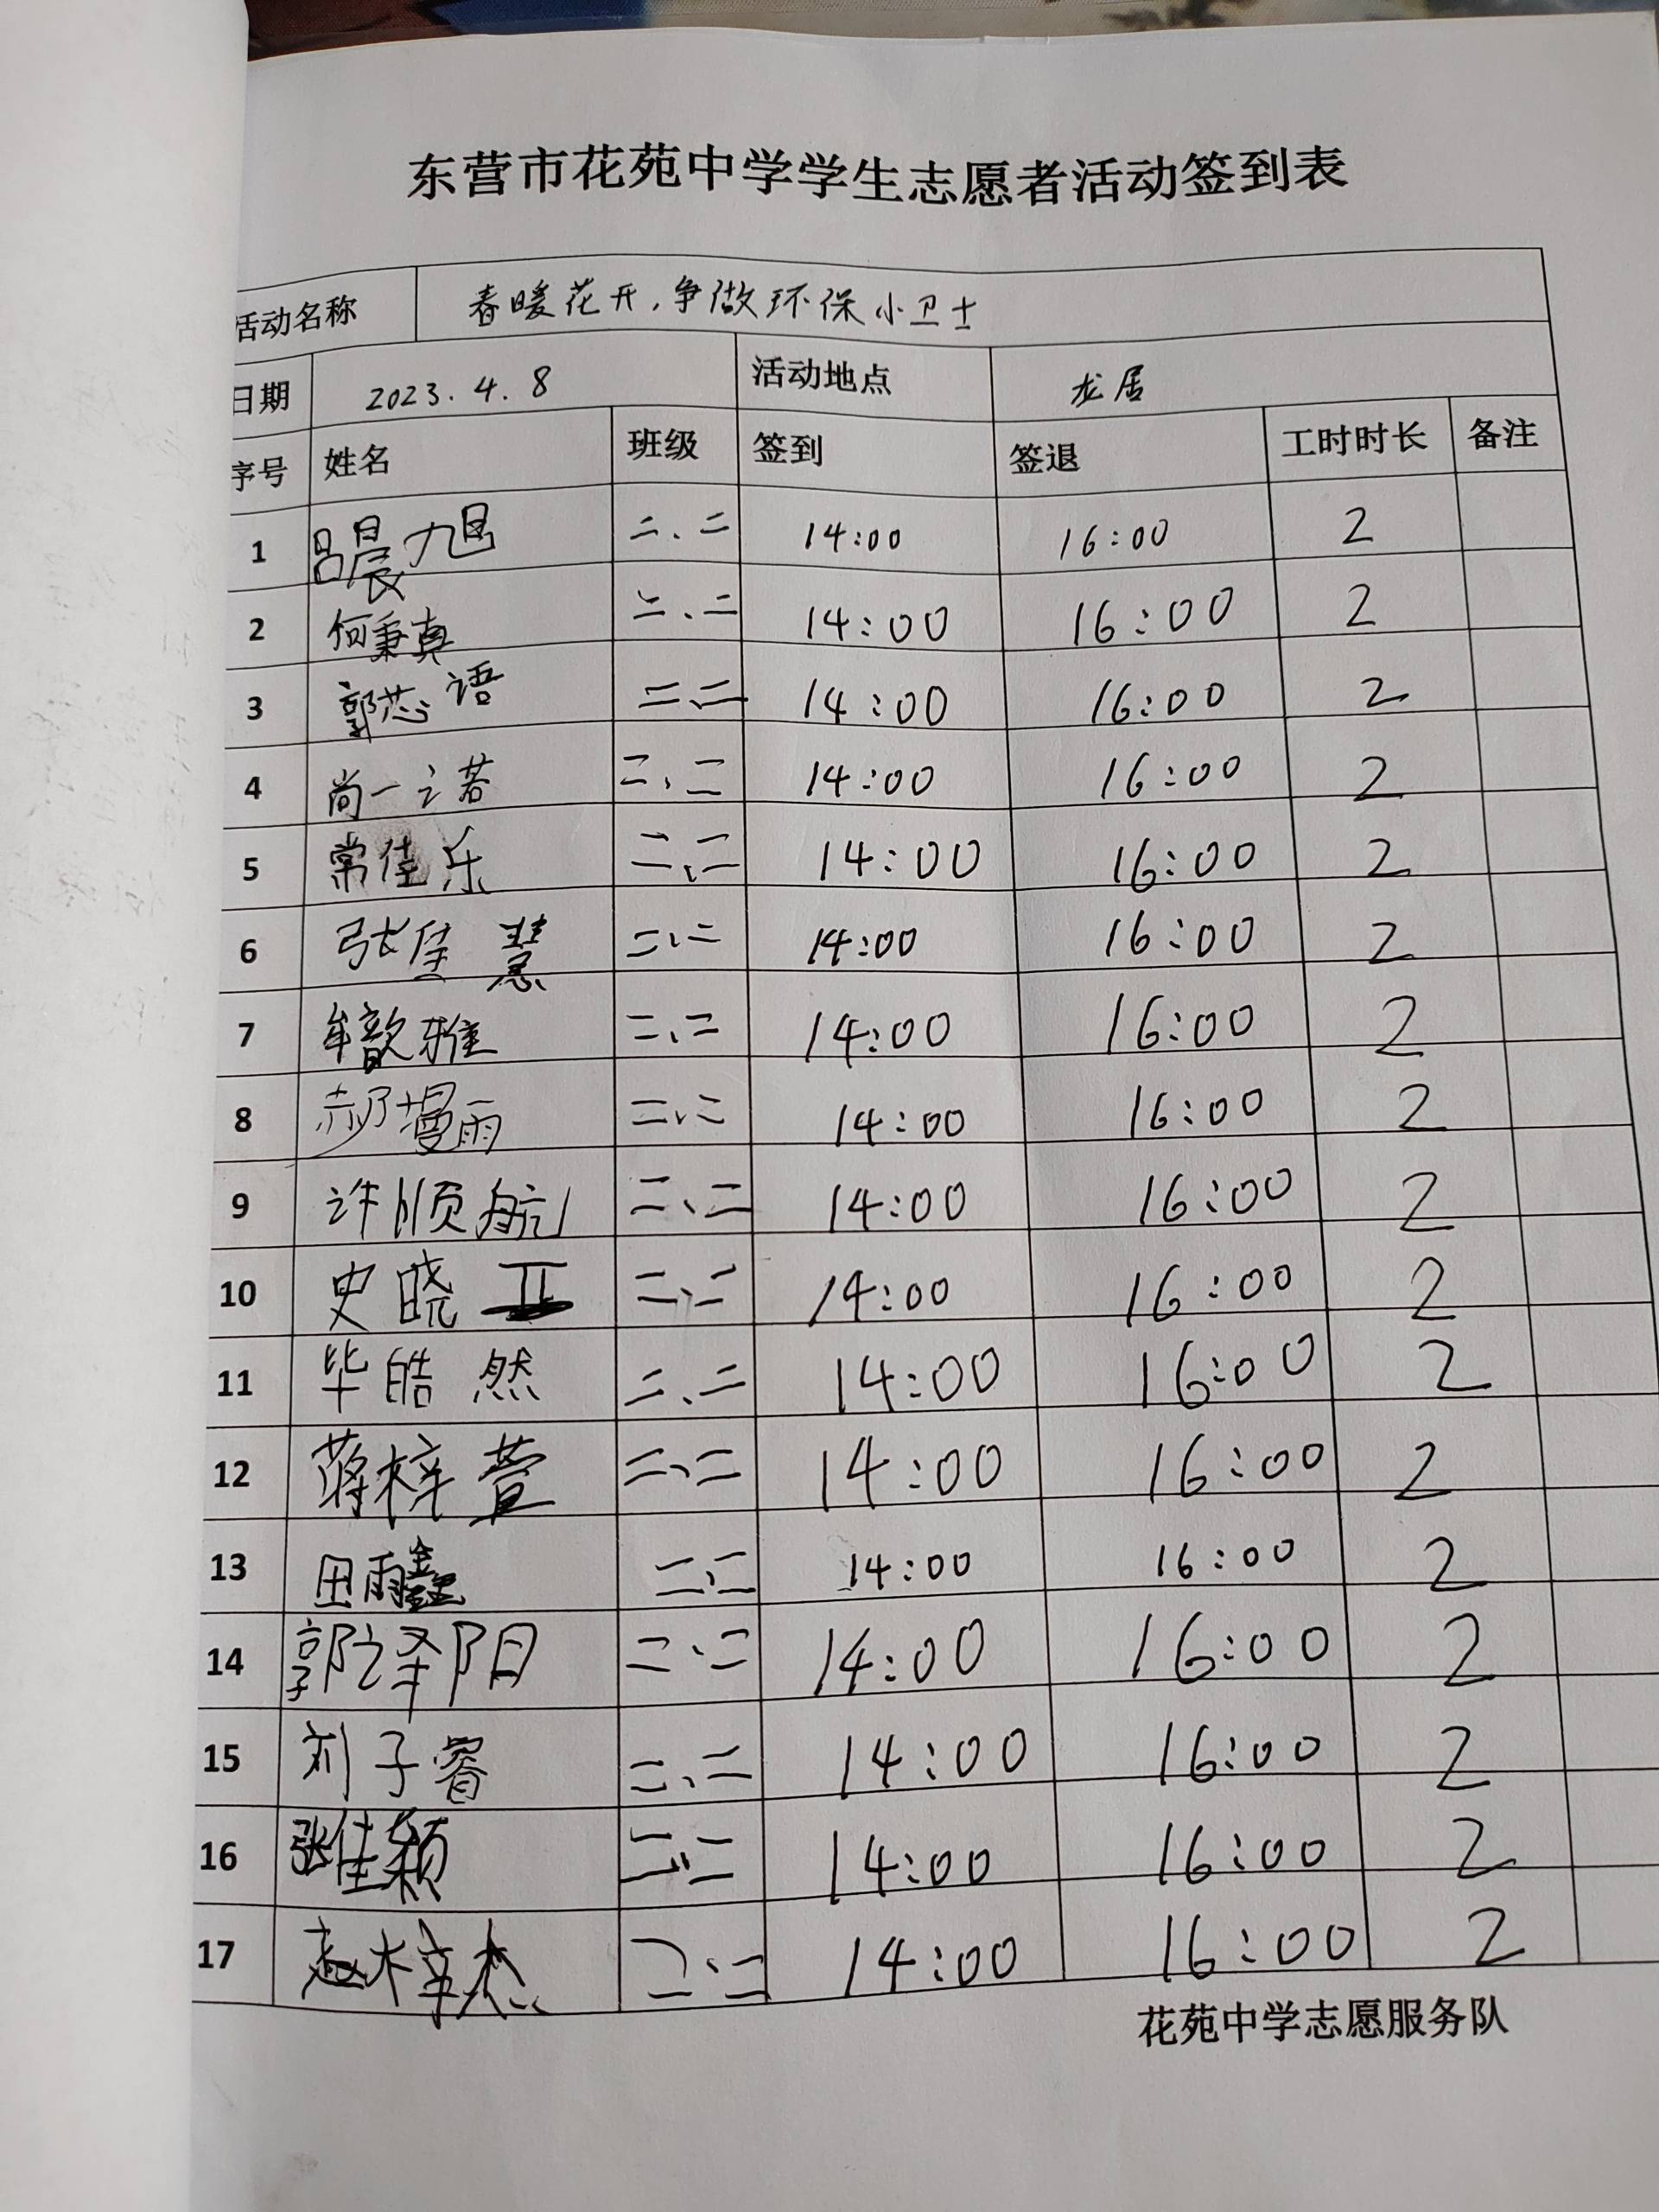 东营市花苑中学学生志愿者活动签到表
活动名称 春暖花开,争做环保小卫士
日期 2023.4.8 活动地点 龙居
序号 姓名 班级 签到 签退 工时时长 备注
1 吕晨旭 二、二 14:00 16:00 2
2 何秉真 二、二 14:00 16:00 2
3 郭芯语 二、二 14:00 16:00 2
4 尚一之若 二、二 14:00 16:00 2
5 常佳乐 二、二 14:00 16:00 2
6 张佳慧 二、二 14:00 16:00 2
7 牟歆雅 二、二 14:00 16:00 2
8 郝墁雨 二、二 14:00 16:00 2
9 许顺航 二、二 14:00 16:00 2
10 史晓 二、二 14:00 16:00 2
11 毕皓然 二、二 14:00 16:00 2
12 蒋梓萱 二、二 14:00 16:00 2
13 田雨鑫 二、二 14:00 16:00 2
14 郭泽阳 二、二 14:00 16:00 2
15 刘子睿 二、二 14:00 16:00 2
16 张佳颖 二、二 14:00 16:00 2
17 赵梓杰 二、二 14:00 16:00 2
花苑中学志愿服务队